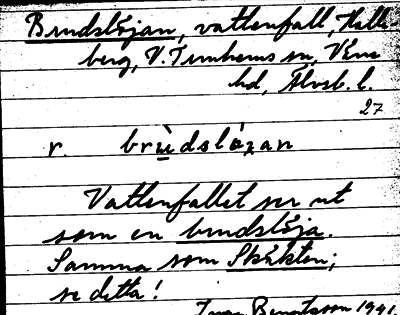 Brudslöjan, vattenfall, Halle-
berg, V. Tunhems sn, Väne
hd, Älvsb. l.
27
r. brùdslö́ʒan
Vattenfallet ser ut
som en brudslöja.
Samma som Skäkten;
se detta!
Bengtsson 1941.